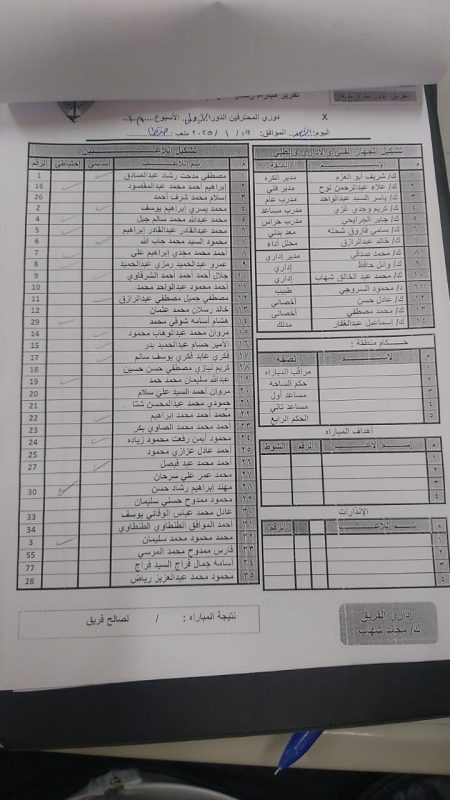 دوري المحترفين
الأسبوع
اليوم: الموافق: ١٩ / ١ / ٢٠٢٥ ملعب:
تشكيل الجهاز الفني والإداري والطبي
م الاسم الصفة
ك/ شريف ابو العزم مدير الكرة
ك/ علاء عبدالرحمن نوح مدير فني
ك/ ياسر السيد عبدالواحد مدرب عام
ك/ كريم وجدي مدرب مساعد
ك/ جابر مدرب حراس
ك/ سامي فاروق شحته معد بدني
ك/ خالد عبدالرازق محلل أداء
ك/ محمد صدقي مدير إداري
ك/ وائل حافظ إداري
ك/ محمد عبد الخالق شهاب إداري
د/ محمود السروجي طبيب
ك/ عادل حسن أخصائي
ك/ محمد مصطفي أخصائي
ك/ إسماعيل عبدالغفار مدلك
حكام منطقة :
م الاسم الصفة
١ مراقب المباراه
٢ حكم الساحه
٣ مساعد أول
٤ مساعد ثاني
٥ الحكم الرابع
أهداف المباراه
م إسم اللاعب الرقم الشوط
١
٢
٣
٤
الإنذارات
م اسم اللاعب الرقم
١
٢
٣
٤
تشكيل اللاعبين
م إسم اللاعب أساسي إحتياطي الرقم
١ مصطفي مدحت رشاد عبدالصادق 1
٢ إبراهيم أحمد محمد عبدالمقصود 16
٣ إسلام محمد شرف أحمد 26
٤ محمد يسري إبراهيم يوسف 2
٥ محمد عبدالله محمد سالم جبل 4
٦ محمد عبدالقادر عبدالقادر إبراهيم 5
٧ محمود السيد محمد جاب الله 6
٨ أحمد محمد مجدي إبراهيم علي 7
٩ عمرو عبدالحميد رمزي عبدالحميد 8
١٠ جلال أحمد أحمد أحمد الشرقاوي 9
١١ أحمد محمود عبدالواحد محمد 10
١٢ مصطفي جميل مصطفي عبدالرازق 11
١٣ خالد رسلان محمد عثمان 12
١٤ هشام أسامه شوقي محمد 29
١٥ مروان محمد عبدالوهاب محمود 14
١٦ الأمير حسام عبدالحميد بدر 15
١٧ فكري عابد فكري يوسف سالم 17
١٨ كريم نيازي مصطفي حسن حسين 18
١٩ عبدالله سليمان محمد حمد 19
٢٠ مروان أحمد السيد علي سلام 20
٢١ حمودي محمد عبدالمحسن شتا 21
٢٢ محمد أحمد محمد إبراهيم 22
٢٣ أحمد محمد محمد الصاوي بكر 23
٢٤ محمود أيمن رفعت محمود زياده 24
٢٥ أحمد عادل عزازي محمود 25
٢٦ أحمد محمد عيد فيصل 27
٢٧ محمد عمر علي سرحان
٢٨ مهند إبراهيم رشاد حسن 30
٢٩ محمود ممدوح حسني سليمان
٣٠ عادل محمد عباس الوفاني يوسف 33
٣١ أحمد الموافق الطنطاوي الطنطاوي 34
٣٢ محمد محمود محمد سليمان 3
٣٣ فارس ممدوح محمد المرسي 55
٣٤ أسامه جمال فراج السيد فراج 77
٣٥ محمود محمد عبدالعزيز رياض 28
نتيجة المباراه : / لصالح فريق
إداري الفريق
ك/ محمد شهاب